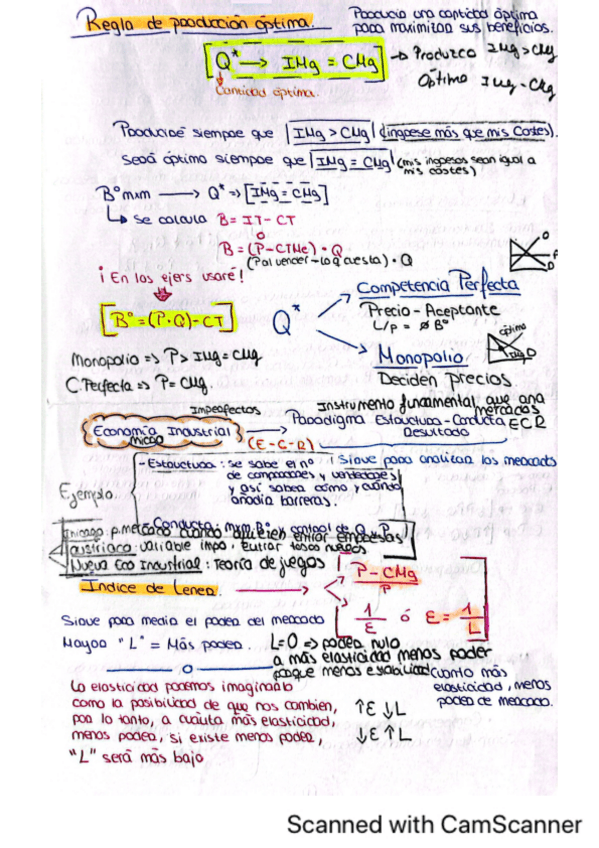 Regla de producción óptima.
Producir una cantidad óptima
para maximizar sus beneficios.
Q* → IMg = CMg → Produzca IMg > CMg
Cantidad óptima. Óptimo IMg - CMg
Produciré siempre que IMg > CMg (ingrese más que mis costes).
Será óptimo siempre que IMg = CMg (mis ingresos sean igual a
mis costes)
Bº mxm → Q* => [IMg = CMg]
↳ Se calcula B = IT - CT
ó
B = (P - CTMe) · Q
(Pal vencer - lo q cuesta) · Q
¡En los ejers usaré!
Bº = (P·Q) - CT
Q*
Competencia Perfecta
Precio - Aceptante
L/P = Ø Bº
Monopolio
óptimo
IMg D
Deciden precios.
Monopolio => P > IMg = CMg
C. Perfecta => P = CMg.
Imperfectos
Instrumento fundamental que ana
mercados
Economía Industrial → Paradigma Estructura - Conducta ECR
micro
(E-C-R) Resultado
- Estructura: se sabe el nº
de compradores y vendedores
y así sabea cómo y cuándo
añadir barreras.
Sirve para analizar los mercados
Ejemplo
Conducta: mxm Bº y control de Q y P
Chicago: p. mercado cuando quieren entrar empresas
austriaco: variable impo. Entrar tasas nuevos
Nueva Eco Industrial: Teoría de juegos
Índice de Lerner. → P - CMg / P
1/ε ó ε = 1/L
Sirve para medir el poder del mercado
Mayor "L" = Más poder. L=0 => poder nulo
a más elasticidad menos poder
porque menos estabilidad
cuanto más
elasticidad, menos
poder de mercado.
La elasticidad podemos imaginarlo
como la posibilidad de que nos cambien,
por lo tanto, a cuanta más elasticidad,
menos poder, si existe menos poder,
"L" será más bajo
↑ε ↓L
↓ε ↑L
Scanned with CamScanner